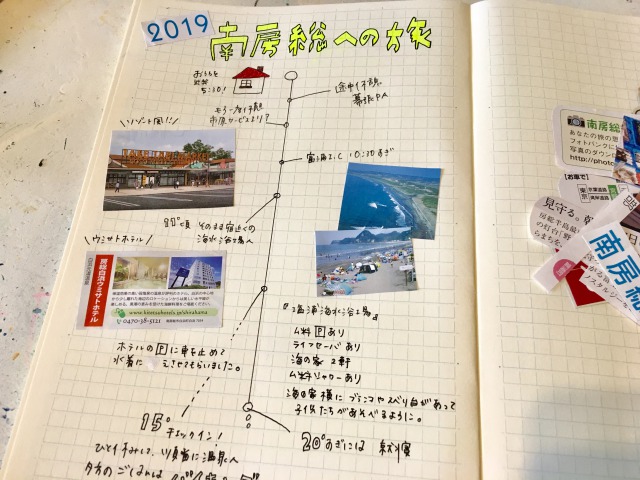 2019
南房総への旅
おうちを
出発
5:30!
途中休憩
幕張PA
もう一度休憩
市原サービスエリア?
\リゾート風!!/
富浦I.C 10:30すぎ
11°頃 そのまま宿近くの
海水浴場へ
\ウミサトホテル/
房総白浜ウミサトホテル
www.hientsuhotels.jp/shirahama
0470-38-5121
『塩浦海水浴場』
ム料Pあり
ライフセーバあり
海の家 2軒
ム料シャワーあり
海の家様に ブランコやスベリ台があって
子供たちがあそべるように。
ホテルのPに車を止めて
水着に えさせてもらいました。
15°
チェックイン!
ひと休みして、
温泉へ
夕方のごはんは
20°すぎには 就寝
南房総
あなたの旅の思
フォトバンクに
写真のダウン
http://photo
【お車で】
東京
京葉道路
見守る。
房総半島最
の灯台「野
らまちを
南房総